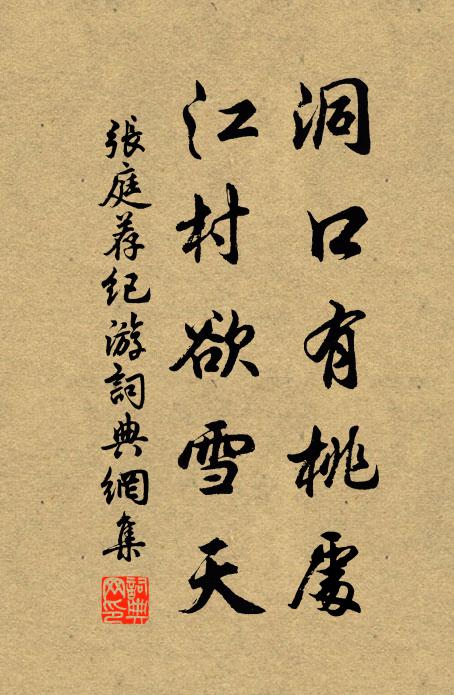 洞口有桃處
江村欲雪天
張庭荐纪游詞典網集
詞典网印